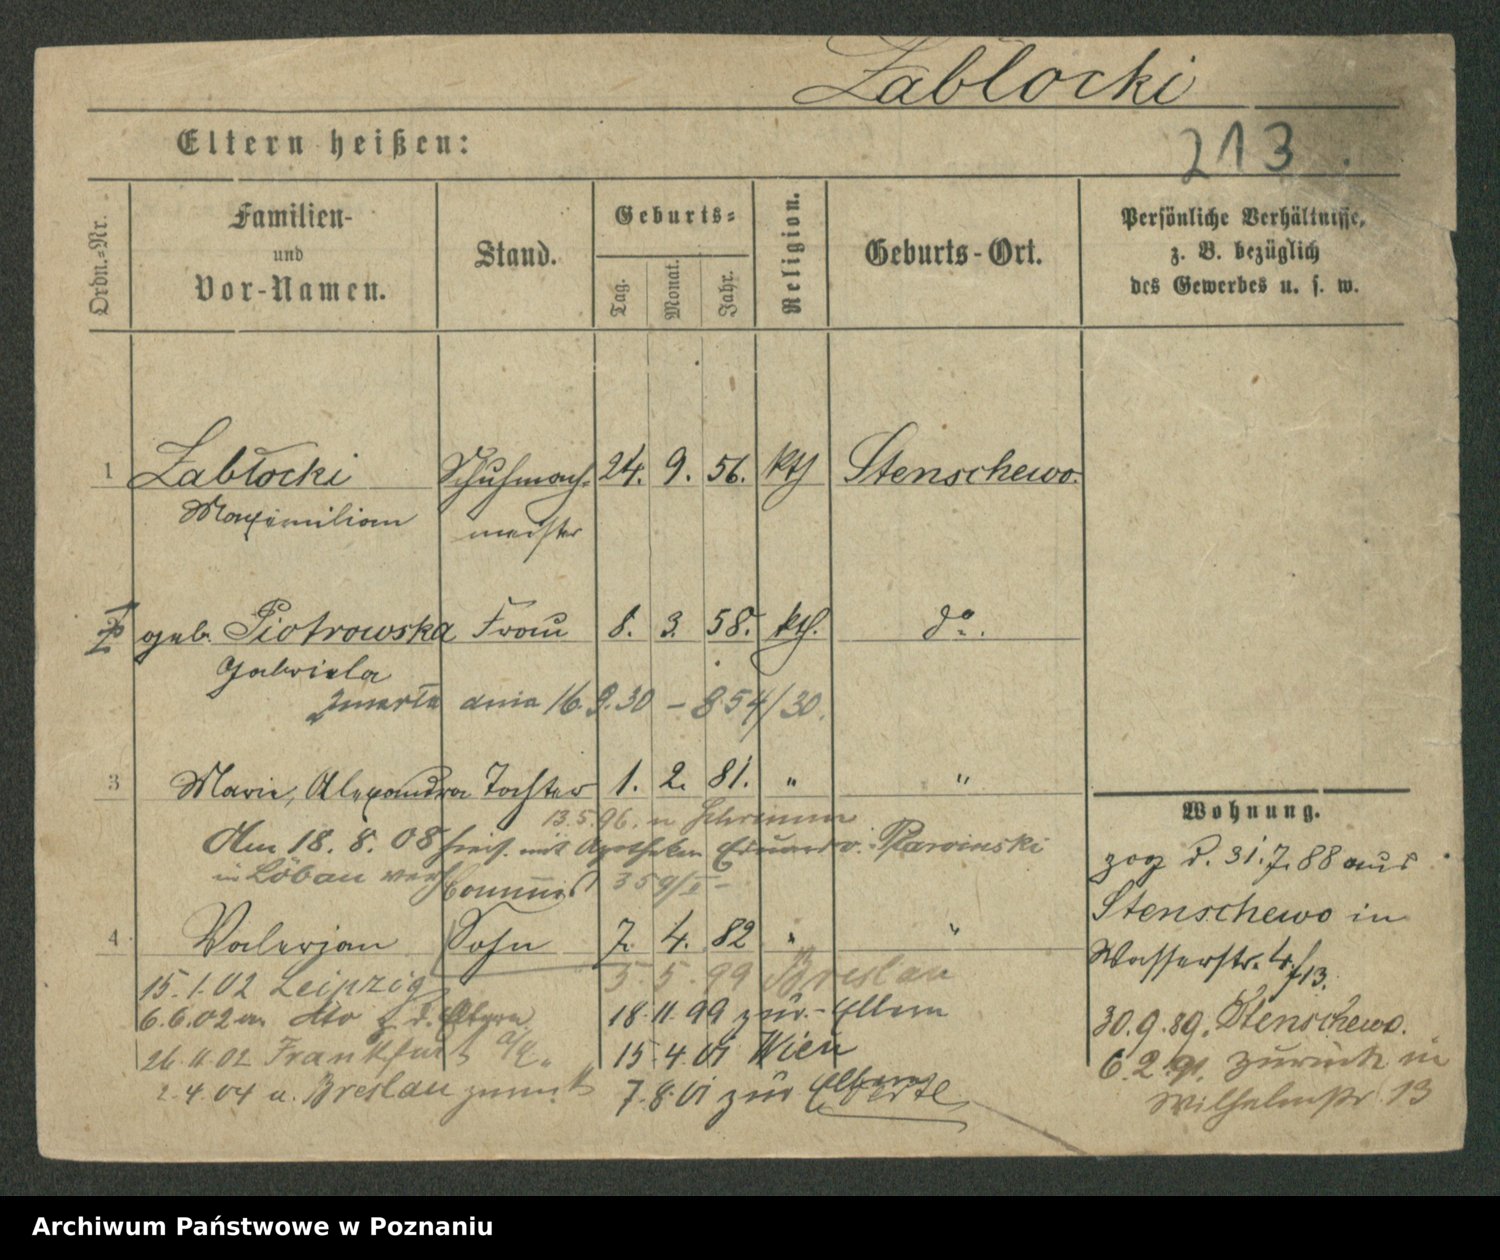 Zabłocki
Eltern heißen:
213
Ordn.-Nr.
Familien-
und
Vor-Namen.
Stand.
Geburts-
Tag.
Monat.
Jahr.
Religion.
Geburts-Ort.
Persönliche Verhältnisse,
z. B. bezüglich
des Gewerbes u. s. w.
1 Zabłocki Schuhmach- 24. 9. 56. kth Stenschewo.
Maximilian meister
geb. Piotrowska Frau 8. 3. 58. kth. do.
Gabriela
zmarła dnia 16.9.30 – 854/30.
3 Marie, Alexandra Tochter 1. 2. 81. " "
13.5.96. n Schrimm
Am 18. 8. 08 mit Apotheker Eduard v.
in Löbau 359/
4 Valerjan Sohn 7. 4. 82 " "
15.1.02 Leipzig 5.5.99 Breslau
6.6.02 z. d. Eltern 18.11.99 zur. Eltern
26.11.02 Frankfurt a/ 15.4.01 Wien
2.4.04 a. Breslau zurück 7.8.01 zur Eltern
Wohnung.
zog d. 31.7.88 aus
Stenschewo in
Wasserstr. 4/13.
30.9.89. Stenschewo.
6.2.91. zurück in
Wilhelmstr. 13
Archiwum Państwowe w Poznaniu